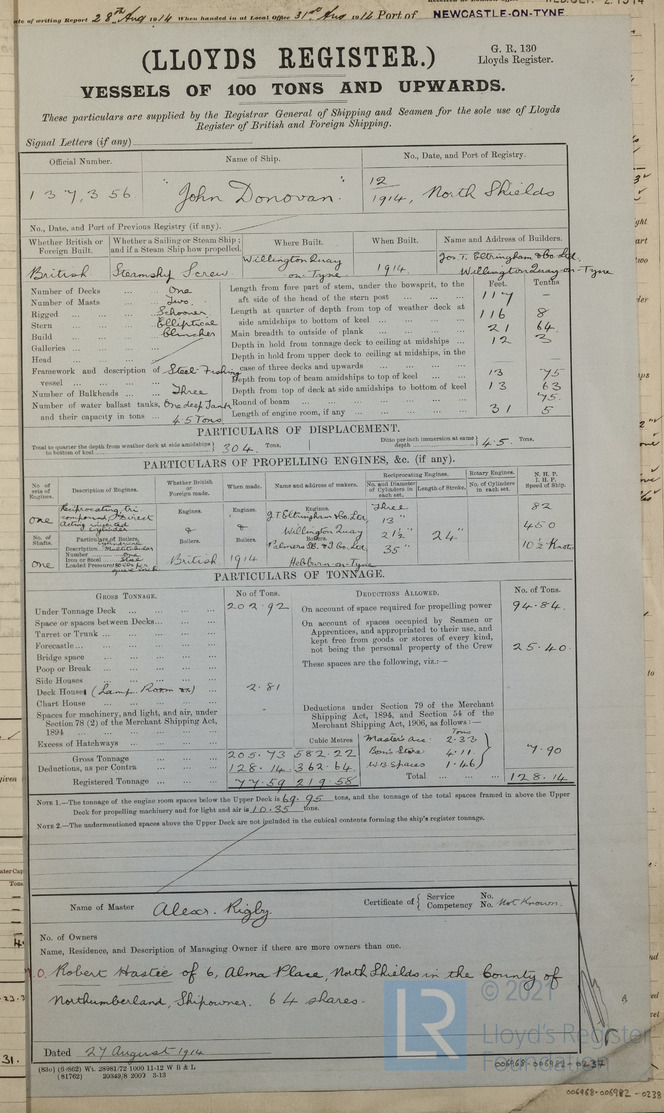 Date of writing Report 28th Aug 1914 When handed in at Local Office 31st Aug 1914 Port of NEWCASTLE-ON-TYNE
(LLOYDS REGISTER.)
G. R. 130
Lloyds Register.
VESSELS OF 100 TONS AND UPWARDS.
These particulars are supplied by the Registrar General of Shipping and Seamen for the sole use of Lloyds
Register of British and Foreign Shipping.
Signal Letters (if any)
Official Number. Name of Ship. No., Date, and Port of Registry.
137,356 "John Donovan." 12/1914, North Shields
No., Date, and Port of Previous Registry (if any).
Whether British or Foreign Built. Whether a Sailing or Steam Ship; and if a Steam Ship how propelled. Where Built. When Built. Name and Address of Builders.
British Steamship Screw Willington Quay on-Tyne 1914. Jos. T. Eltringham & Co. Ltd. Willington Quay-on-Tyne
Feet. Tenths
Number of Decks ... One
Number of Masts ... Two.
Rigged ... Schooner
Stern ... Elliptical
Build ... Clincher
Galleries ...
Head ...
Framework and description of vessel ... Steel Fishing
Number of Bulkheads ... Three
Number of water ballast tanks, and their capacity in tons ... One deep Tank 45 Tons
Length from fore part of stem, under the bowsprit, to the aft side of the head of the stern post ... 117 –
Length at quarter of depth from top of weather deck at side amidships to bottom of keel ... 116 8
Main breadth to outside of plank ... 21 64
Depth in hold from tonnage deck to ceiling at midships ... 12 3
Depth in hold from upper deck to ceiling at midships, in the case of three decks and upwards ... –
Depth from top of beam amidships to top of keel ... 13 75
Depth from top of deck at side amidships to bottom of keel 13 63
Round of beam ... 75
Length of engine room, if any ... 31 5
PARTICULARS OF DISPLACEMENT.
Total to quarter the depth from weather deck at side amidships to bottom of keel 304. Tons. Ditto per inch immersion at same depth 4.5. Tons.
PARTICULARS OF PROPELLING ENGINES, &c. (if any).
No. of sets of Engines. Description of Engines. Whether British or Foreign made. When made. Name and address of makers. Reciprocating Engines. No. and Diameter of Cylinders in each set. Length of Stroke. Rotary Engines. No. of Cylinders in each set. N. H. P. I. H. P. Speed of Ship.
One Reciprocating Tri compound, Direct Acting inverted Cylinder Engines. Engines. Engines. J.T. Eltringham & Co. Ltd. Willington Quay Three 13" 21½" 35" 24" 82 450 10½ Knots
No. of Shafts. Particulars of Boilers. Boilers. Boilers. Boilers.
One Description Cylindrical Multitubular Number One Iron or Steel Steel Loaded Pressure British 1914 Palmers SB. & I Co. Ltd. Hebburn-on-Tyne
PARTICULARS OF TONNAGE.
GROSS TONNAGE. No of Tons. DEDUCTIONS ALLOWED. No. of Tons.
Under Tonnage Deck ... 202.92
Space or spaces between Decks...
Turret or Trunk ...
Forecastle...
Bridge space ...
Poop or Break ...
Side Houses ...
Deck Houses (Lamp Room &c) ... 2.81
Chart House ...
Spaces for machinery, and light, and air, under Section 78 (2) of the Merchant Shipping Act, 1894 ... -
Excess of Hatchways ...
Cubic Metres
Gross Tonnage ... 205.73 582.22
Deductions, as per Contra ... 128.14 362.64
Registered Tonnage ... 77.59 219.58
On account of space required for propelling power 94.84.
On account of spaces occupied by Seamen or Apprentices, and appropriated to their use, and kept free from goods or stores of every kind, not being the personal property of the Crew 25.40
These spaces are the following, viz.:–
Deductions under Section 79 of the Merchant Shipping Act, 1894, and Section 54 of the Merchant Shipping Act, 1906, as follows:—
Tons
Master's acc: 2.33
Bosn's Store 4.11
W.B Spaces 1.46
7.90
Total ... 128.14
NOTE 1.—The tonnage of the engine room spaces below the Upper Deck is 69.95 tons, and the tonnage of the total spaces framed in above the Upper
Deck for propelling machinery and for light and air is 10.35 tons.
NOTE 2.—The undermentioned spaces above the Upper Deck are not included in the cubical contents forming the ship's register tonnage.
Name of Master Alexr. Rigby. Certificate of { Service Competency No. No. Not Known.
No. of Owners
Name, Residence, and Description of Managing Owner if there are more owners than one.
M.O. Robert Hastie of 6, Alma Place, North Shields in the County of
Northumberland, Shipowner. 64 shares.
Dated 27 August 1914
(83o) (6:862) Wt. 28981/72 1000 11-12 W B & L
(81762) 20349/8 2000 3-13
LR © 2021
Lloyd's Register
Foundation
006968-006982-0237
006968-006982-0238